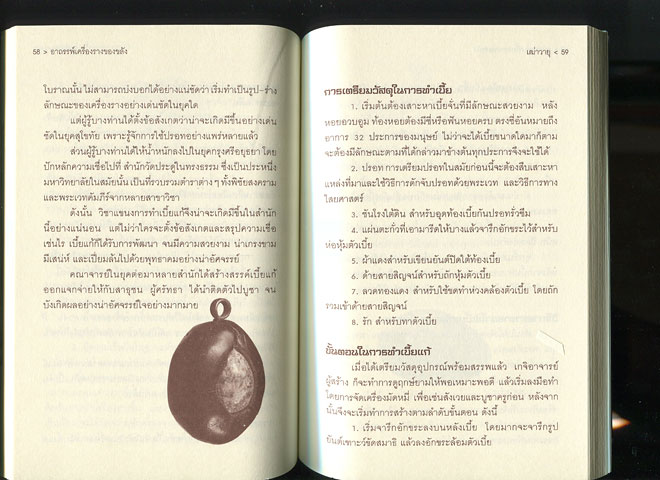 58 > อาถรรพ์เครื่องรางของขลัง
โบราณนั้น ไม่สามารถบ่งบอกได้อย่างแน่ชัดว่า เริ่มทำเป็นรูป-ร่าง
ลักษณะของเครื่องรางอย่างเด่นชัดในยุคใด
แต่ผู้รู้บางท่านได้ตั้งข้อสังเกตว่าน่าจะเกิดมีขึ้นอย่างเด่น
ชัดในยุคสุโขทัย เพราะรู้จักการใช้ปรอทอย่างแพร่หลายแล้ว
ส่วนผู้รู้บางท่านได้ให้น้ำหนักลงไปในยุคกรุงศรีอยุธยา โดย
ปักหลักความเชื่อไปที่ สำนักวัดประดู่ในทรงธรรม ซึ่งเป็นประหนึ่ง
มหาวิทยาลัยในสมัยนั้น เป็นที่รวบรวมตำราต่าง ๆ ทั้งพิชัยสงคราม
และพระเวทคัมภีร์จากหลายสาขาวิชา
ดังนั้น วิชาแขนงการทำเบี้ยแก้จึงน่าจะเกิดมีขึ้นในสำนัก
นี้อย่างแน่นอน แต่ไม่ว่าใครจะตั้งข้อสังเกตและสรุปความเชื่อ
เช่นไร เบี้ยแก้ก็ได้รับการพัฒนา จนมีความสวยงาม น่าเกรงขาม
มีเสน่ห์ และเปี่ยมล้นไปด้วยพุทธาคมอย่างน่าอัศจรรย์
คณาจารย์ในยุคต่อมาหลายสำนักได้สร้างสรรค์เบี้ยแก้
ออกแจกจ่ายให้กับสาธุชน ผู้ศรัทธา ได้นำติดตัวไปบูชา จน
บังเกิดผลอย่างน่าอัศจรรย์ใจอย่างมากมาย
เฒ่าวายุ < 59
การเตรียมวัสดุในการทำเบี้ย
1. เริ่มต้นต้องเสาะหาเบี้ยจั่นที่มีลักษณะสวยงาม หลัง
หอยอวบอูม ท้องหอยต้องมีซี่หรือฟันหอยครบ ตรงซี่อันหมายถึง
อาการ 32 ประการของมนุษย์ ไม่ว่าจะได้เบี้ยขนาดใดมาก็ตาม
จะต้องมีลักษณะตามที่ได้กล่าวมาข้างต้นทุกประการจึงจะใช้ได้
2. ปรอท การเตรียมปรอทในสมัยก่อนนี้จะต้องสืบเสาะหา
แหล่งที่มาและใช้วิธีการดักจับปรอทด้วยพระเวท และวิธีการทาง
ไสยศาสตร์
3. ชันโรงใต้ดิน สำหรับอุดท้องเบี้ยกันปรอทรั่วซึม
4. แผ่นตะกั่วที่เอามารีดให้บางแล้วจารึกอักขระไว้สำหรับ
ห่อหุ้มตัวเบี้ย
5. ผ้าแดงสำหรับเขียนยันต์ปิดใต้ท้องเบี้ย
6. ด้ายสายสิญจน์สำหรับถักหุ้มตัวเบี้ย
7. ลวดทองแดง สำหรับใช้ขดทำห่วงคล้องตัวเบี้ย โดยถัก
รวมเข้าด้วยสายสิญจน์
8. รัก สำหรับทาตัวเบี้ย
ขั้นตอนในการทำเบี้ยแก้
เมื่อได้เตรียมวัสดุอุปกรณ์พร้อมสรรพแล้ว เกจิอาจารย์
ผู้สร้าง ก็จะทำการดูฤกษ์ยามให้พอเหมาะพอดี แล้วเริ่มลงมือทำ
โดยการจัดเครื่องมัดหมี่ เพื่อเซ่นสังเวยและบูชาครูก่อน หลังจาก
นั้นจึงจะเริ่มทำการสร้างตามลำดับขั้นตอน ดังนี้
1. เริ่มจารึกอักขระลงบนหลังเบี้ย โดยมากจะจารึกรูป
ยันต์เฑาะว์ขัดสมาธิ แล้วลงอักขระล้อมตัวเบี้ย